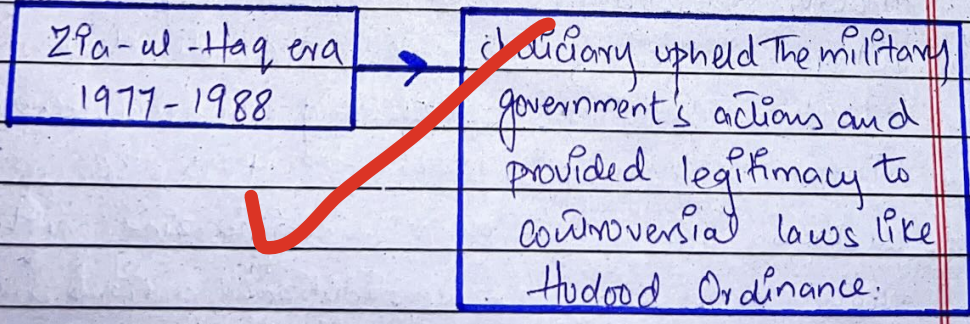 Zia-ul-Haq era
1977-1988
judiciary upheld The military
government's actions and
provided legitimacy to
controversial laws like
Hudood Ordinance.